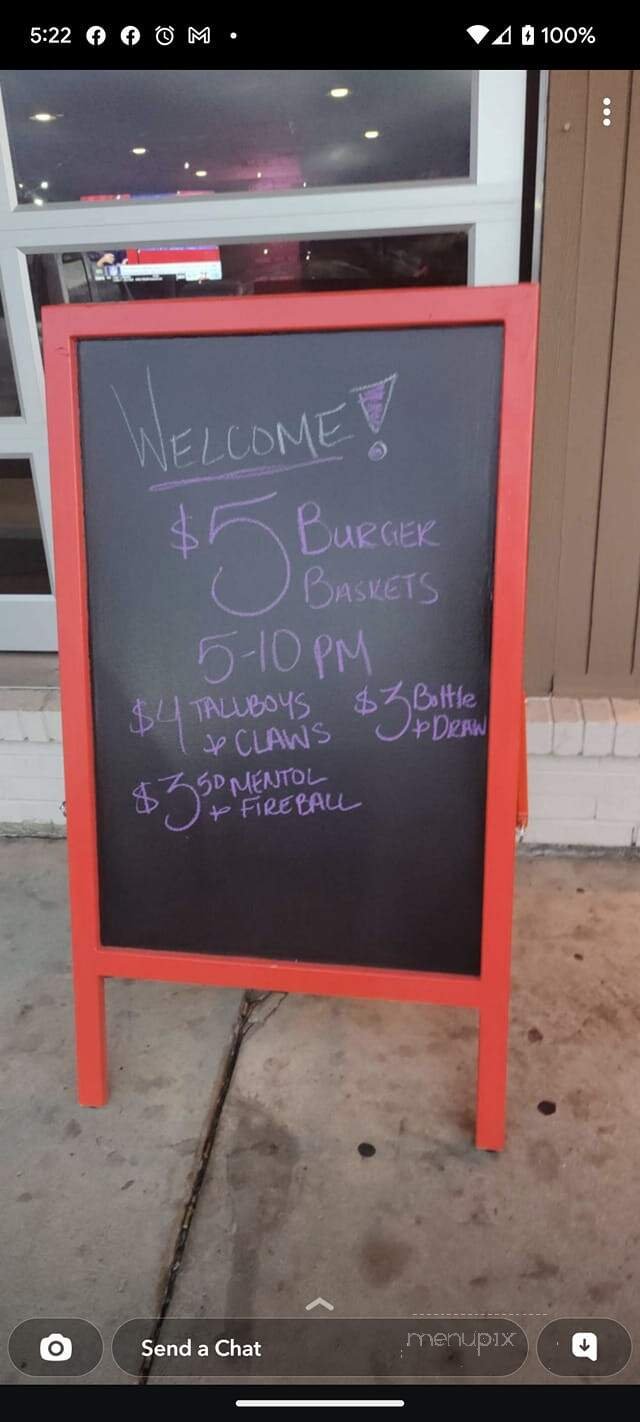 5:22
100%
WELCOME!
$5 BURGER
BASKETS
5-10 PM
$4 TALLBOYS
+ CLAWS
$3 Bottle
+ DRAW
$3 50 MENTOL
+ FIREBALL
Send a Chat
menupix